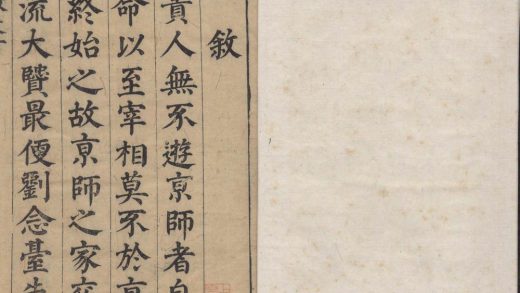 敘
貴人無不遊京師者自
命以至宰相莫不於京
終始之故京師之家交
流大贒最便劉念臺先